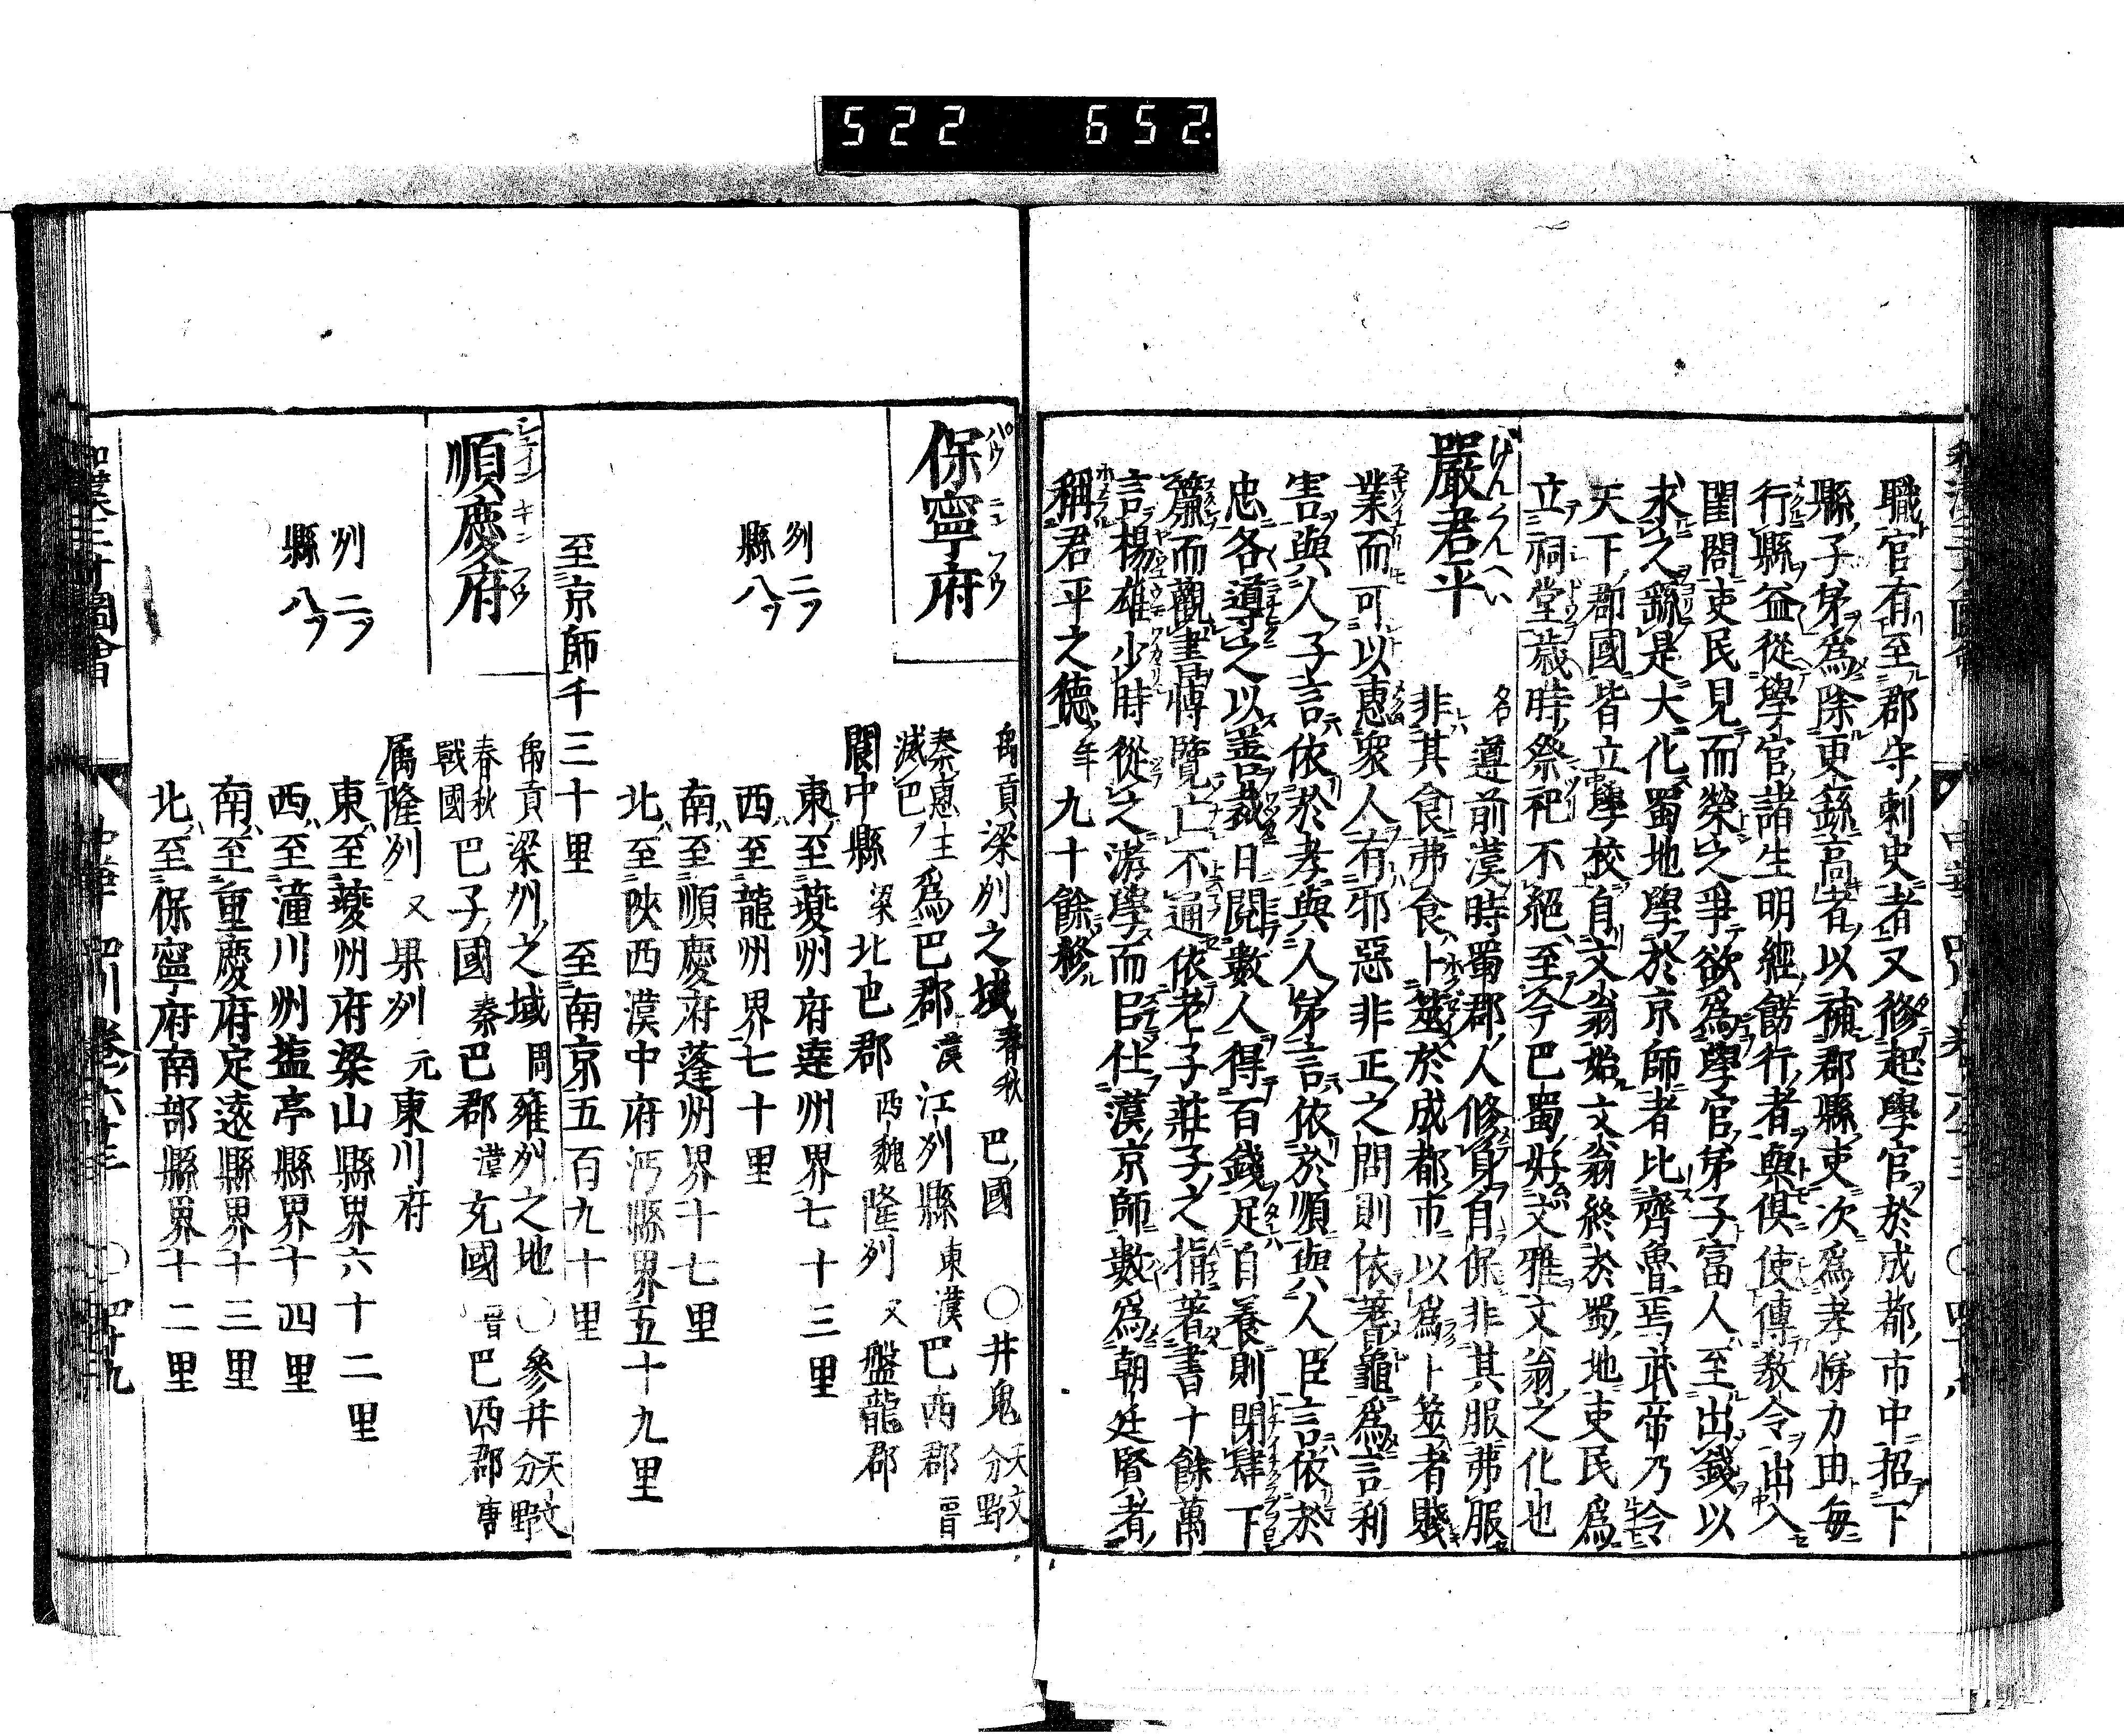 522 652.
職官有至郡守刺史者又修起學官於成都市中招下
縣子弟爲除更繇高者以補郡縣吏次爲孝悌力田毎
行縣益從學官諸生明經飭行者與倶使傳教令出入
閨閤吏民見而榮之爭欲爲學官弟子富人至出錢以
求之繇是大化蜀地學於京師者比齊魯焉武帝乃令
天下郡國皆立學校自文翁始文翁終於蜀地吏民爲
立祠堂歳時祭祀不絕至今巴蜀好文雅文翁之化也
嚴君平 名遵前漢時蜀郡人修身自保非其服弗服
非其食弗食卜筮於成都市以爲卜筮者賤
業而可以惠衆人有邪惡非正之問則依蓍龜爲言利
害與人子言依於孝與人弟言依於順與人臣言依於
忠各導之以善裁日閱數人得百錢足自養則閉肆下
簾而觀書博覽亡不通依老子莊子之指著書十餘萬
言楊雄少時從之游學而已仕漢京師數爲朝廷賢者
稱君平之德年九十餘終
保寧府
禹貢梁州之域春秋巴國 ○井鬼天文分野
秦惠王滅巴爲巴郡漢江州縣東漢巴西郡晋
閬中縣梁北巴郡西魏隆州又盤龍郡
州二ツ 東至夔州府達州界七十三里
縣八ツ 西至龍州界七十里
南至順慶府蓬州界十七里
北至陝西漢中府沔縣界五十九里
至京師千三十里 至南京五百九十里
順慶府
禹貢梁州之域周雍州之地○參井天文分野
春秋戰國巴子國秦巴郡漢充國晋巴西郡唐
屬隆州又果州元東川府
州二ツ 東至夔州府梁山縣界六十二里
縣八ツ 西至潼川州塩亭縣界十四里
南至重慶府定遠縣界十三里
北至保寧府南部縣界十二里